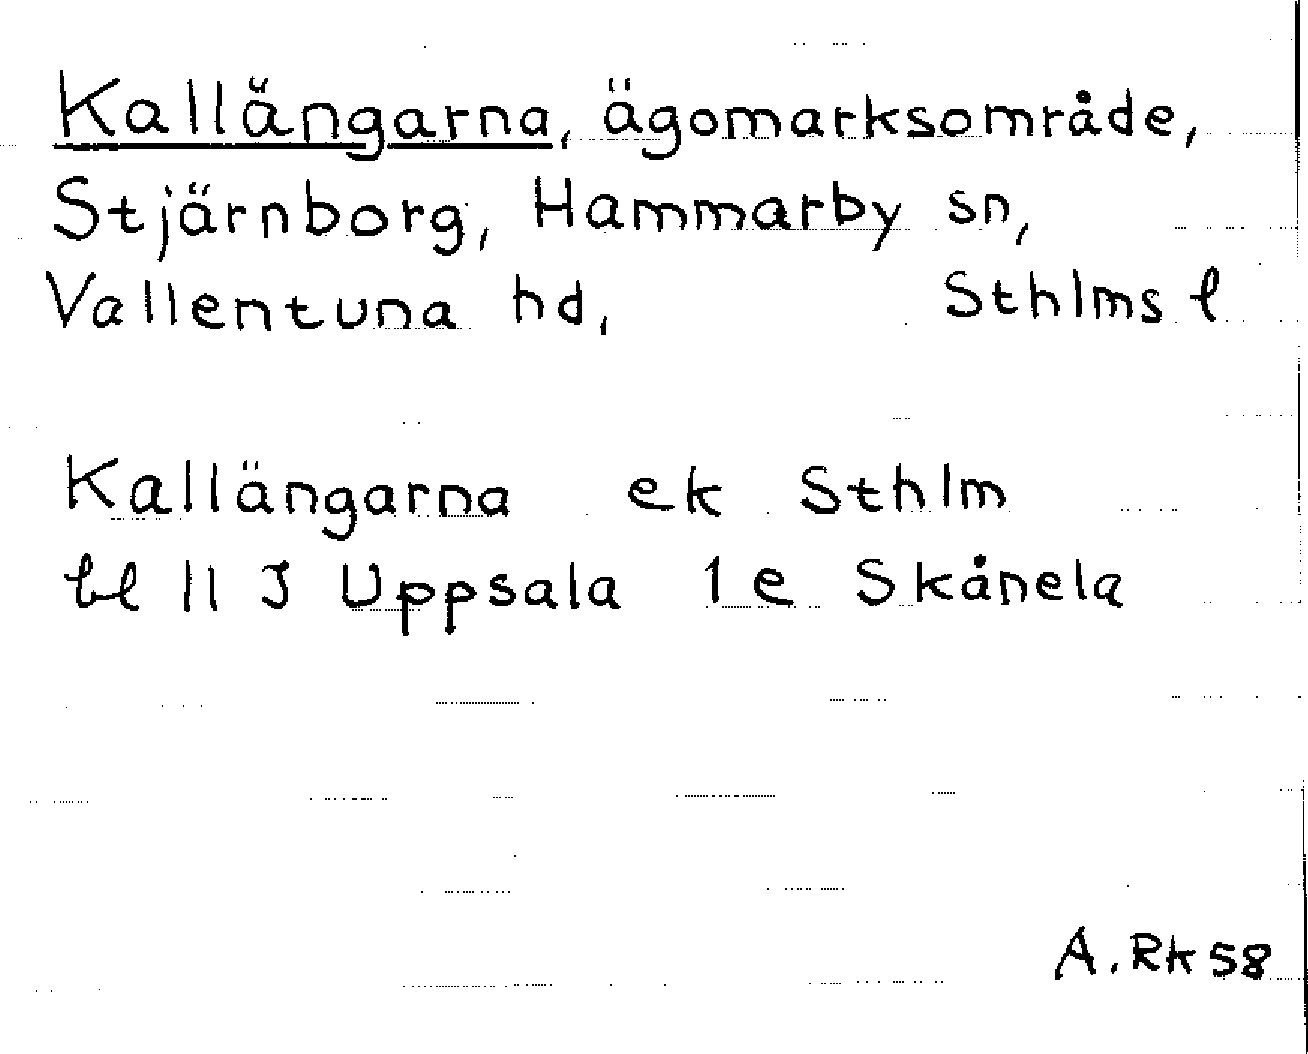 Kallängarna, ägomarksområde,
Stjärnborg, Hammarby sn,
Vallentuna hd, Sthlms l
Kallängarna ek Sthlm
bl 11 J Uppsala 1e Skånela
A. Rk 58